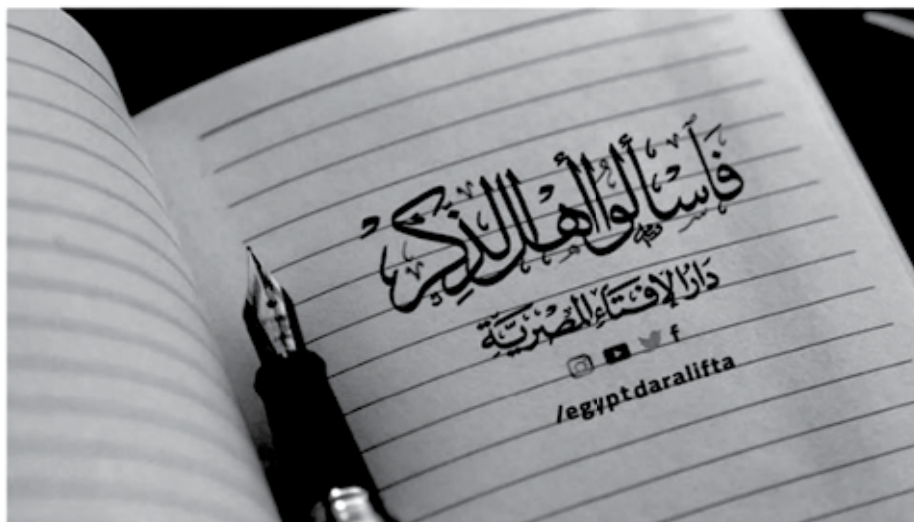 فَاسْأَلُوا أَهْلَ الذِّكْرِ
دَارُ الإِفْتَاءِ المِصْرِيَّةِ
f
/egyptdaralifta